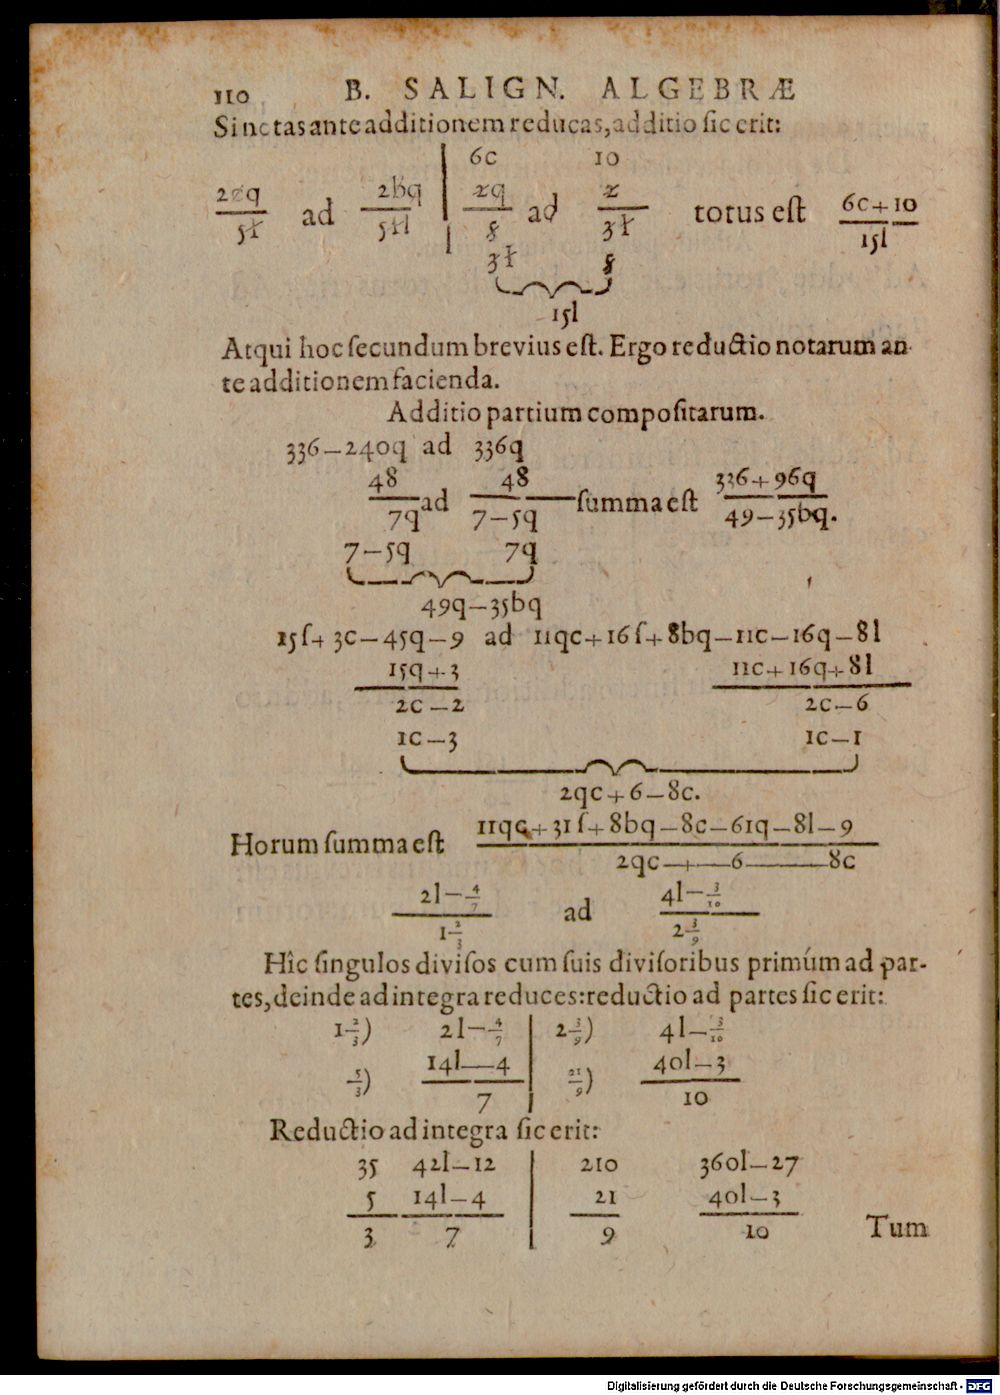 110 B. SALIGN. ALGEBRÆ
Si notas ante additionem reducas, additio ſic erit:
6c 10
2cq ad 2bq | 2q ad 2 totus eſt 6c+10
5ł 5łl 8 3ł 15l
3ł 8
15l
Atqui hoc ſecundum brevius eſt. Ergo reductio notarum an
te additionem facienda.
Additio partium compoſitarum.
336—240q ad 336q
48 ad 48 ſumma eſt 336+96q
7q 7—5q 49—35bq.
7—5q 7q
49q—35bq
15ſ+3c—45q—9 ad 11qc+16ſ+8bq—11c—16q—8l
15q+3 11c+16q+8l
2c—2 2c—6
1c—3 1c—1
2qc+6—8c.
Horum ſumma eſt 11qc+31ſ+8bq—8c—61q—8l—9
2qc—+—6—8c
2l—4/7 ad 4l—3/10
1 2/3 2 3/9
Hîc ſingulos diviſos cum ſuis diviſoribus primúm ad par-
tes, deinde ad integra reduces: reductio ad partes ſic erit:
1 2/3) 2l—4/7 | 2 3/9) 4l—3/10
5/3) 14l—4 21/9) 40l—3
7 10
Reductio ad integra ſic erit:
35 42l—12 | 210 360l—27
5 14l—4 21 40l—3
3 7 9 10 Tum
Digitalisierung gefördert durch die Deutsche Forschungsgemeinschaft - DFG